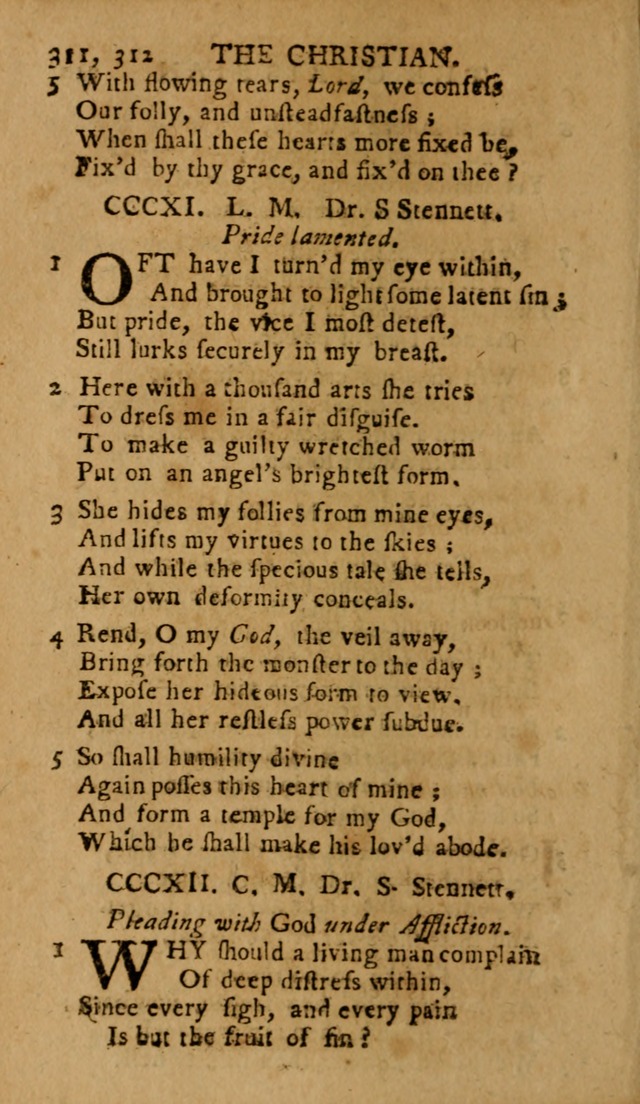 311, 312 THE CHRISTIAN.
5 With flowing tears, Lord, we confeſs
Our folly, and unſteadfaſtneſs ;
When ſhall theſe hearts more fixed be,
Fix'd by thy grace, and fix'd on thee ?
CCCXI. L. M. Dr. S Stennett.
Pride lamented.
1 OFT have I turn'd my eye within,
And brought to light ſome latent ſin ;
But pride, the vice I moſt deteſt,
Still lurks ſecurely in my breaſt.
2 Here with a thouſand arts ſhe tries
To dreſs me in a fair diſguiſe.
To make a guilty wretched worm
Put on an angel's brighteſt form.
3 She hides my follies from mine eyes,
And lifts my virtues to the ſkies ;
And while the ſpecious tale ſhe tells,
Her own deformity conceals.
4 Rend, O my God, the veil away,
Bring forth the monſter to the day ;
Expoſe her hideous form to view.
And all her reſtleſs power ſubdue.
5 So ſhall humility divine
Again poſſes this heart of mine ;
And form a temple for my God,
Which he ſhall make his lov'd abode.
CCCXII. C. M. Dr. S. Stennett.
Pleading with God under Affliction.
1 WHY ſhould a living man complain
Of deep diſtreſs within,
Since every ſigh, and every pain
Is but the fruit of ſin ?